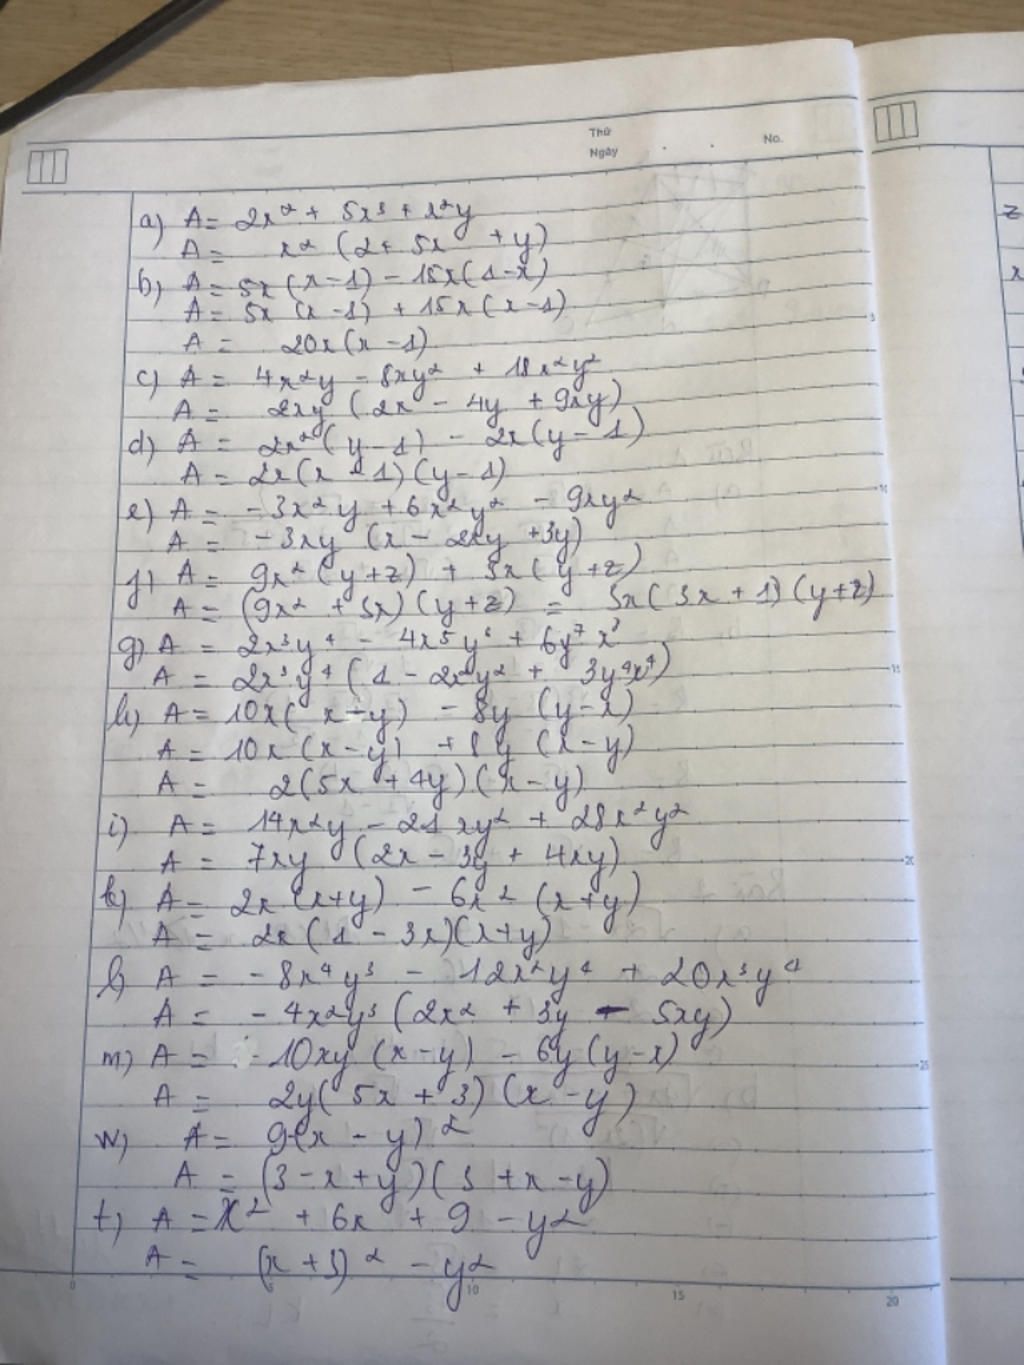 Thứ
No.
Ngày
a) A = 2x² + 5x³ + x²y
A = x² (2 + 5x + y)
b) A = 5x (x - 1) - 15x (1 - x)
A = 5x (x - 1) + 15x (x - 1)
A = 20x (x - 1)
c) A = 4x²y - 8xy² + 18x²y²
A = 2xy (2x - 4y + 9xy)
d) A = 2x² (y - 1) - 2x (y - 1)
A = 2x (x - 1) (y - 1)
e) A = - 3x²y + 6x²y² - 9xy²
A = - 3xy (x - 2xy + 3y)
f) A = 9x² (y + z) + 3x (y + z)
A = (9x² + 3x) (y + z) = 3x (3x + 1) (y + z)
g) A = 2x³y⁴ - 4x⁵y⁶ + 6y⁷x⁷
A = 2x³y⁴ (1 - 2x²y² + 3y⁴x⁴)
h) A = 10x (x - y) - 8y (y - x)
A = 10x (x - y) + 8y (x - y)
A = 2 (5x + 4y) (x - y)
i) A = 14x²y - 21xy² + 28x²y²
A = 7xy (2x - 3y + 4xy)
k) A = 2x (x + y) - 6x² (x + y)
A = 2x (1 - 3x) (x + y)
l) A = - 8x⁴y³ - 12x²y⁴ + 20x³y⁴
A = - 4x²y³ (2x² + 3y - 5xy)
m) A = 10xy (x - y) - 6y (y - x)
A = 2y (5x + 3) (x - y)
w) A = 9 - (x - y)²
A = (3 - x + y) (3 + x - y)
t) A = x² + 6x + 9 - y²
A = (x + 3)² - y²
z
x
5
10
15
20
25
0
5
10
15
20